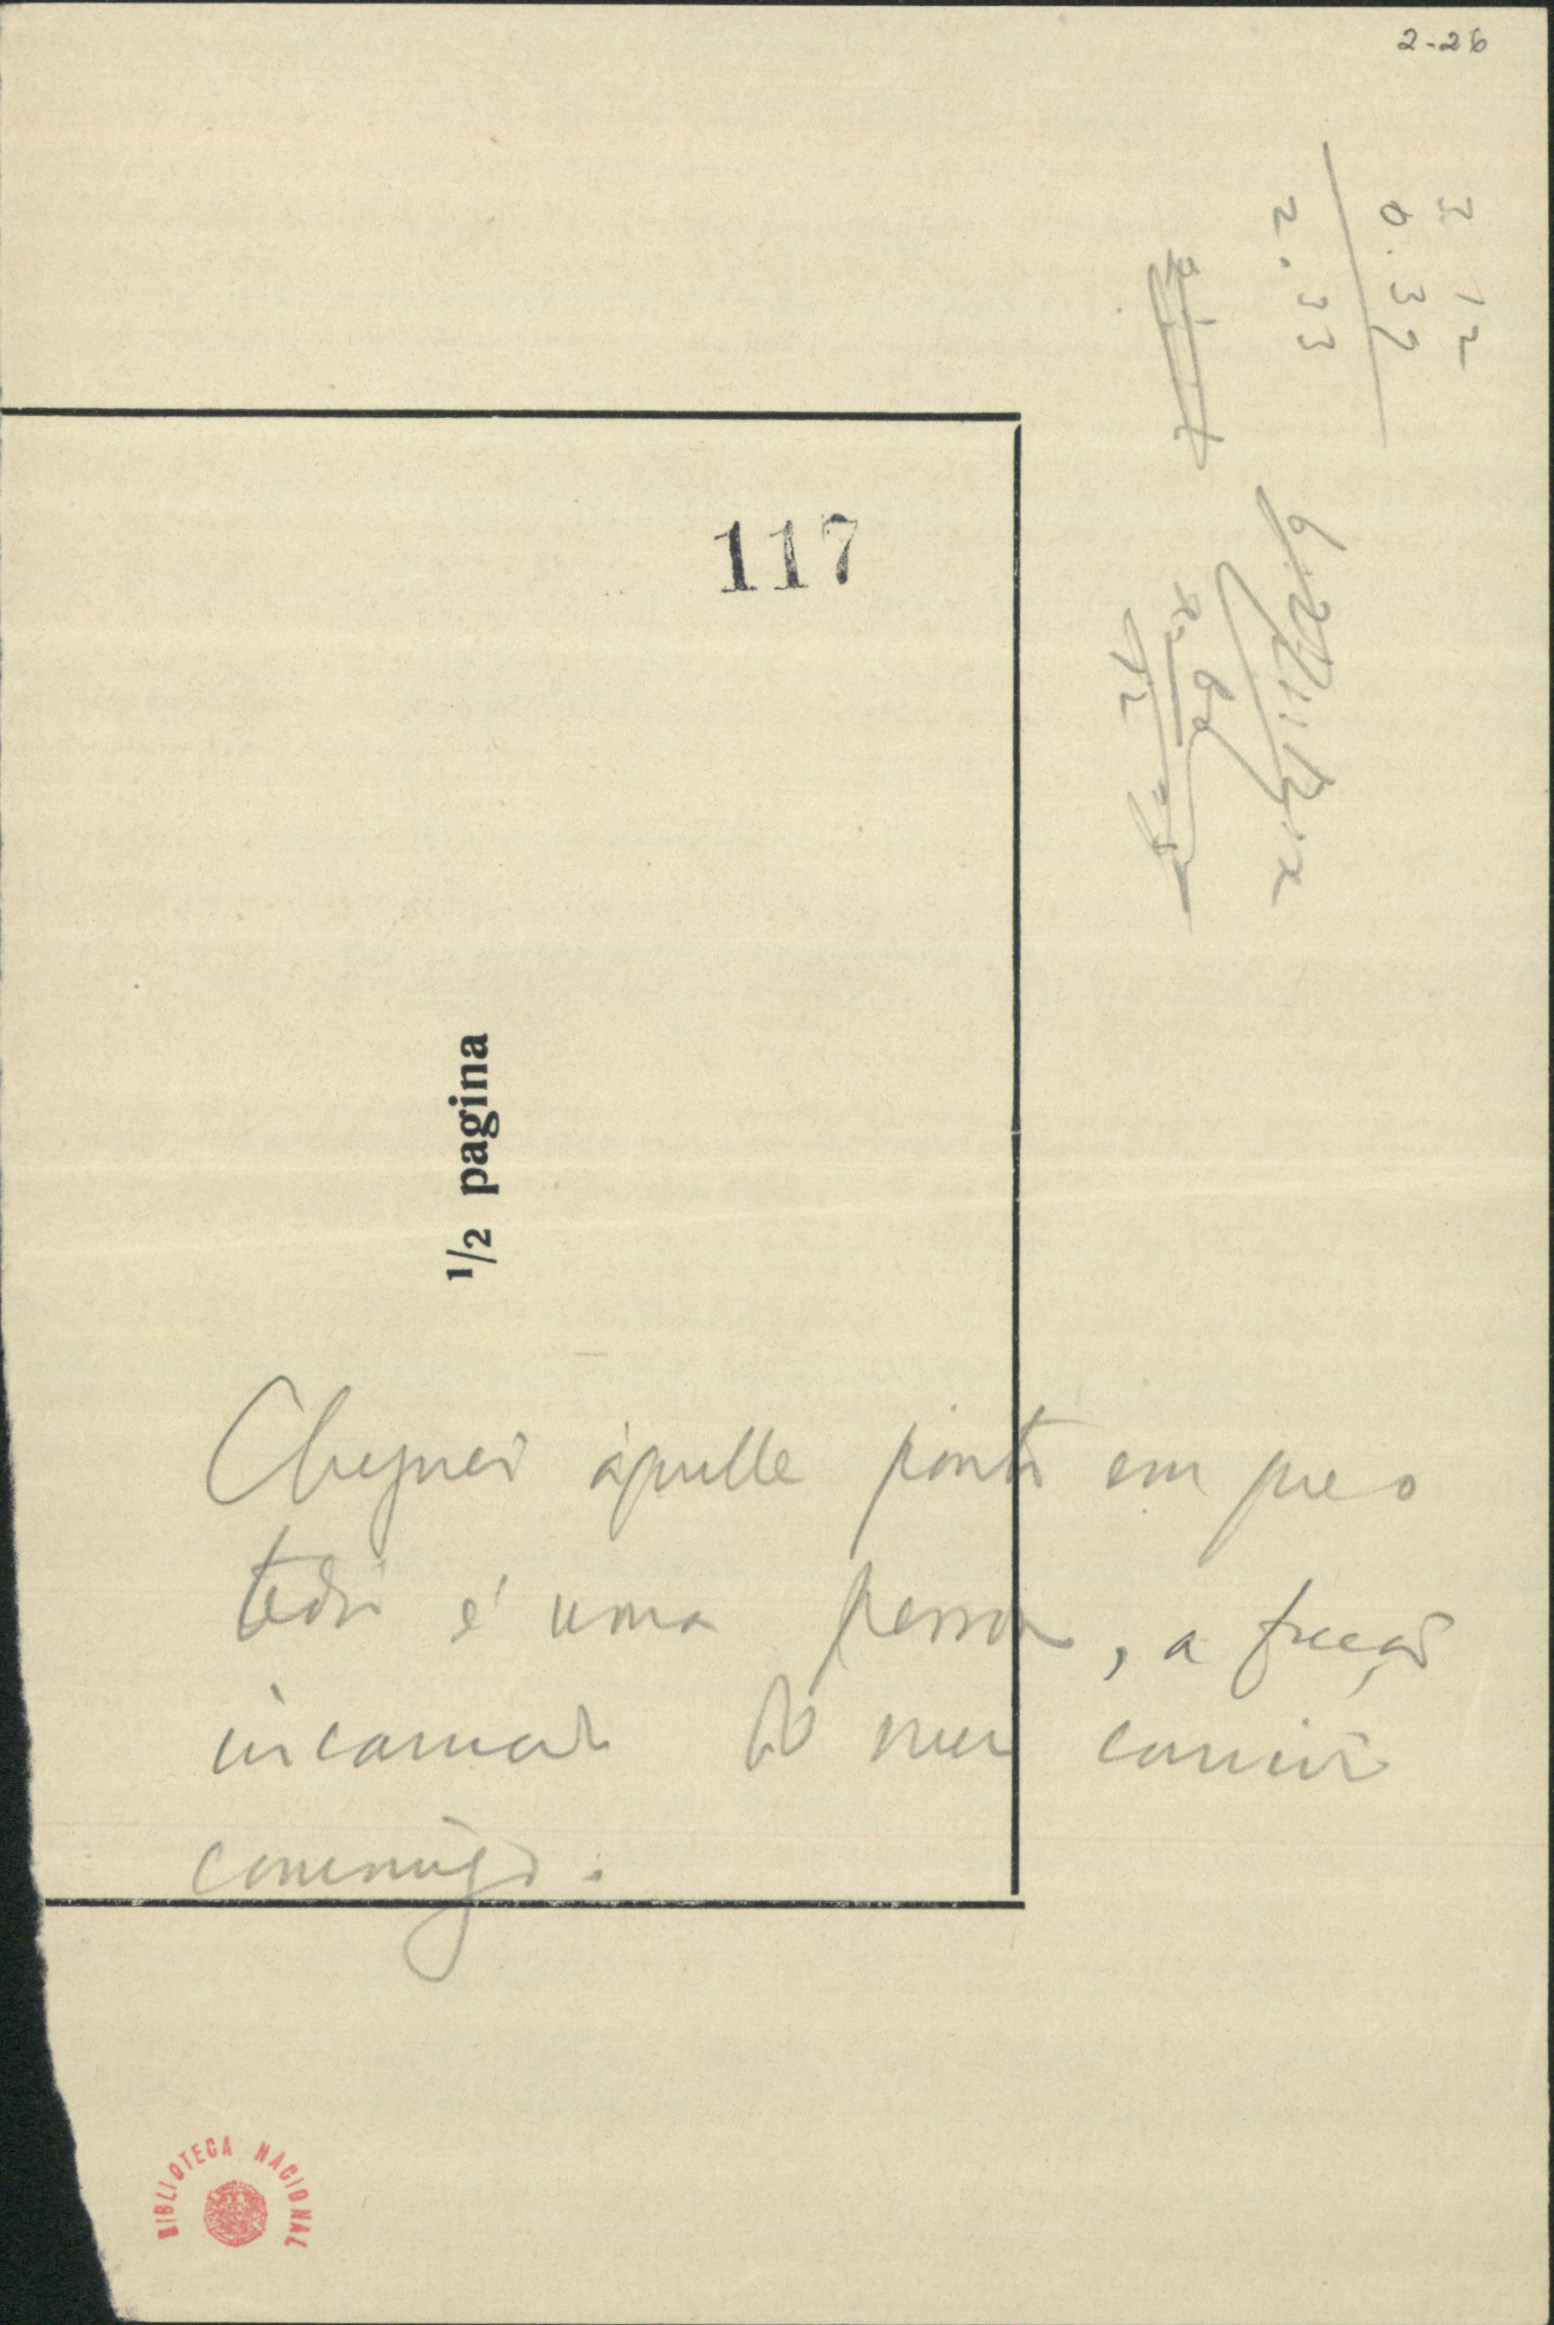 2-26
3 12
0.32
2.33
117
1/2 pagina
Cheguei àquelle ponto em que o
tedio é uma pessoa, a ficção
incarnada do meu convivio
commigo.
BIBLIOTECA NACIONAL